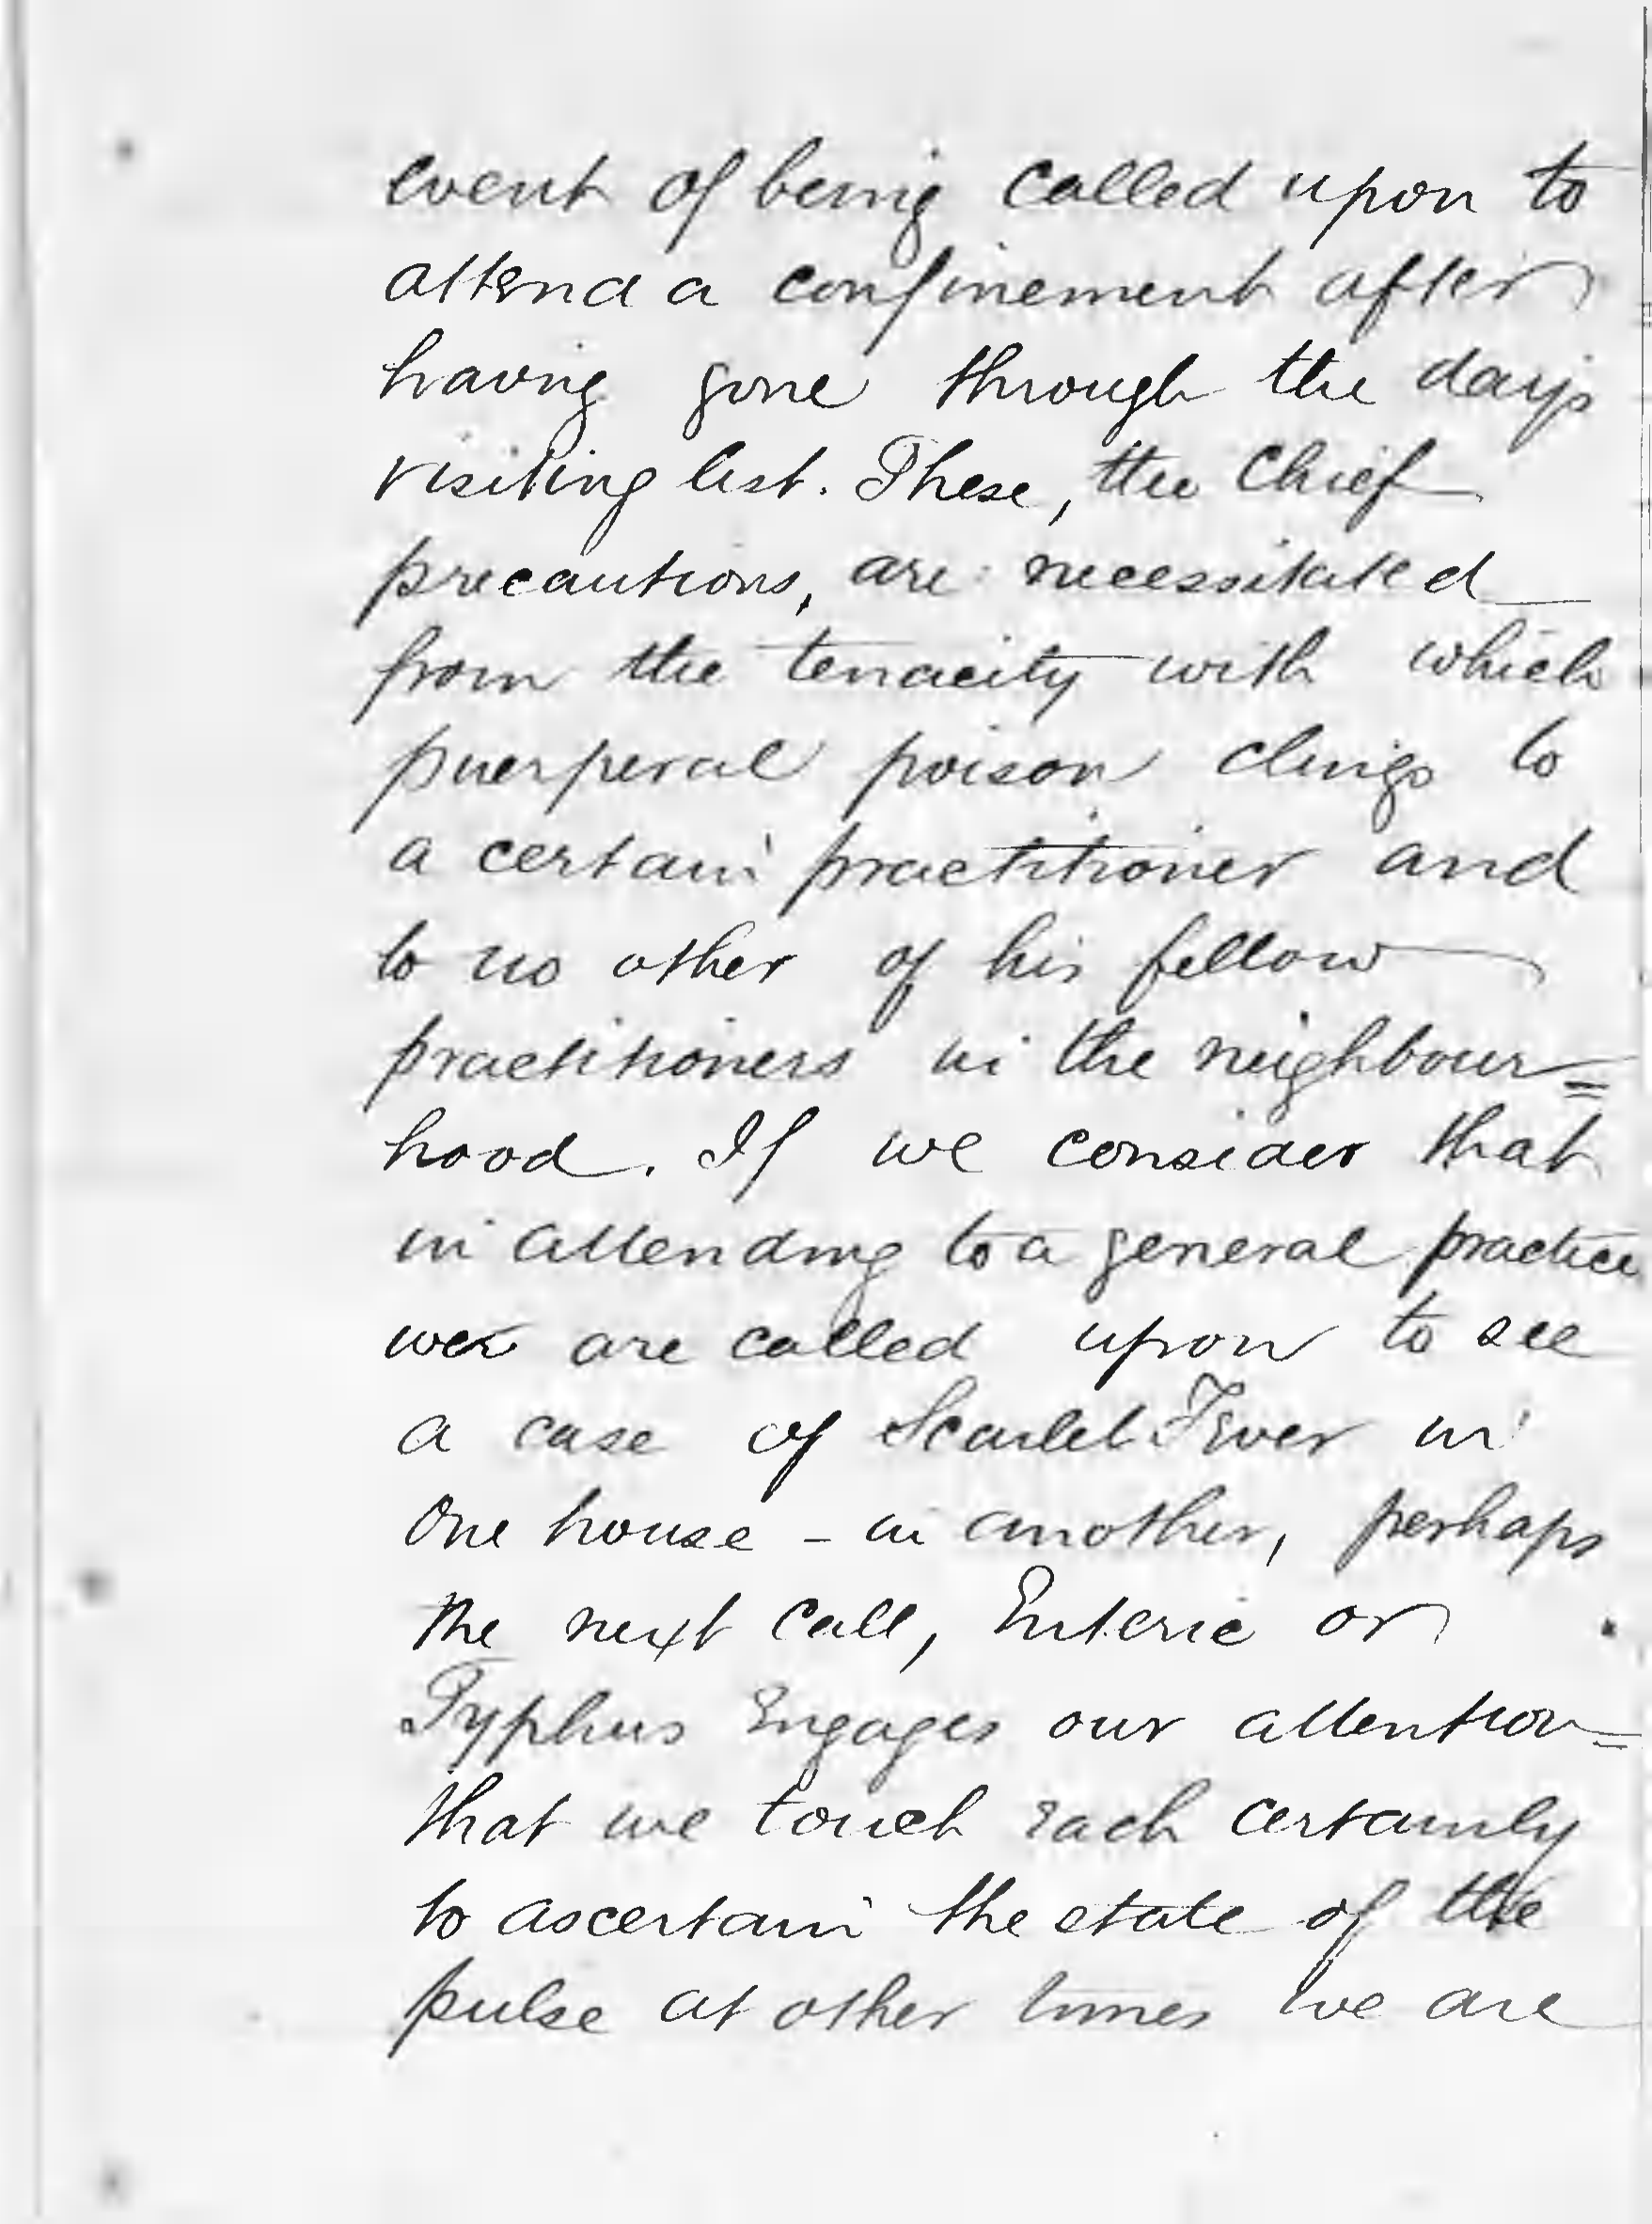 event of being called upon to
attend a confinement after
having gone through the day's
visiting list. These, the Chief
precautions, are necessitated
from the tenacity with which
puerperal poison clings to
a certain practitioner and
to no other of his fellow
practitioners in the neighbour=
hood. If we consider that
in attending to a general practice
we are called upon to see
a case of Scarlet Fever in
one house - in another, perhaps
the next call, Enteric or
Typhus engages our attention=
that we touch each certainly
to ascertain the state of the
pulse at other times we are